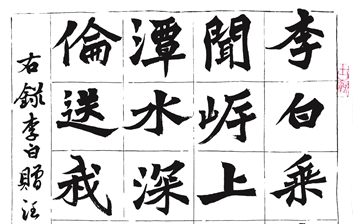 李白乘
聞岸上
潭水深
倫送我
右錄李白贈汪